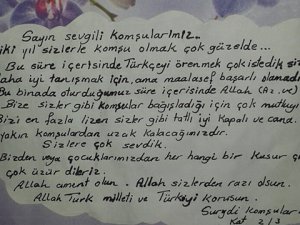 Sayın sevgili komşularımız..
iki yıl sizlerle komşu olmak çok güzelde...
Bu süre içerisinde Türkçeyi örenmek çok istedik
daha iyi tanışmak için, ama maalesef başarlı olamadı
Bu binada oturduğumuz süre içerisinde Allah (Az. ve)
Bize sizler gibi komşular bağışladığı için çok mutluy
Bizi en fazla üzen sizler gibi tatlı iyi kapalı ve cana
yakın komşulardan uzak kalacağımızdır.
Sizlere çok sevdik.
Bizden veya çocuklarımızdan her hangi bir kusur
çok üzür dileriz.
Allah amunt olun. Allah sizlerden razı olsun.
Allah Türk milleti ve Türkiyi korusun.
Komşuları
Kat 2/3